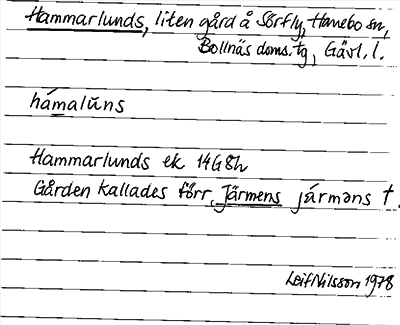 Hammarlunds, liten gård å Sörfly, Hanebo sn,
Bollnäs doms. tg, Gävl. l.
hámalŭns
Hammarlunds ek 14G8h
Gården kallades förr Järmens járməns †.
Leif Nilsson 1978